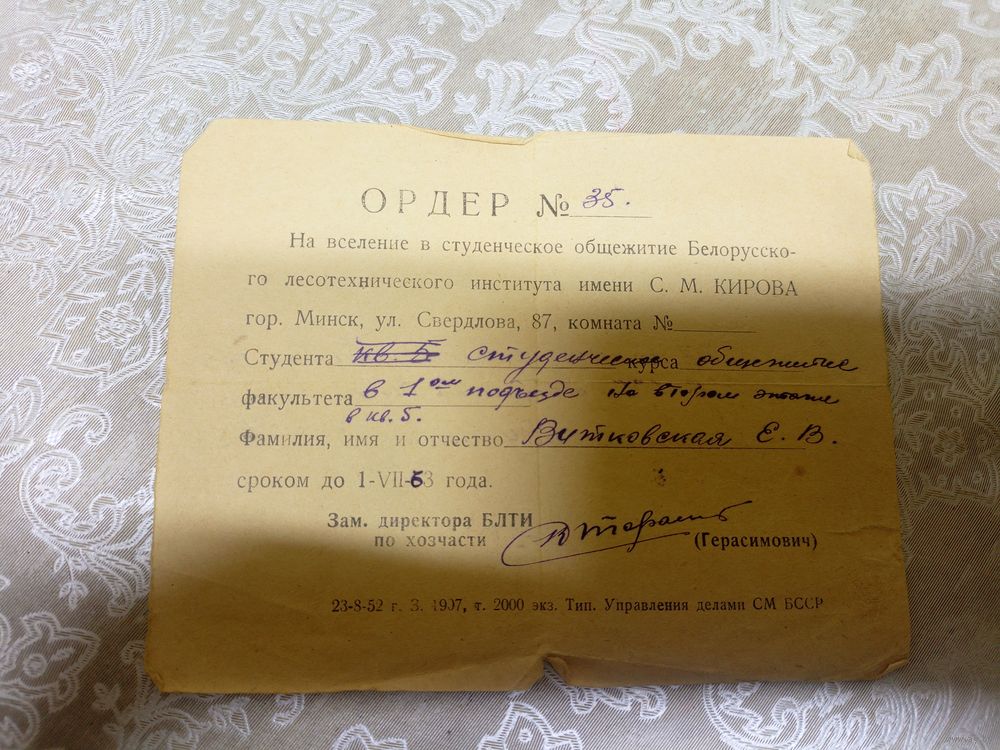 ОРДЕР № 35.
На вселение в студенческое общежитие Белорусско-
го лесотехнического института имени С. М. КИРОВА
гор. Минск, ул. Свердлова, 87, комната №
Студента кв. 5 студенческое курса общежитие
факультета в 1ом подъезде на втором этаже
в кв. 5.
Фамилия, имя и отчество Вутковская Е. В.
сроком до 1-VII-63 года.
Зам. директора БЛТИ
по хозчасти (Герасимович)
23-8-52 г. З. 1907, т. 2000 экз. Тип. Управления делами СМ БССР